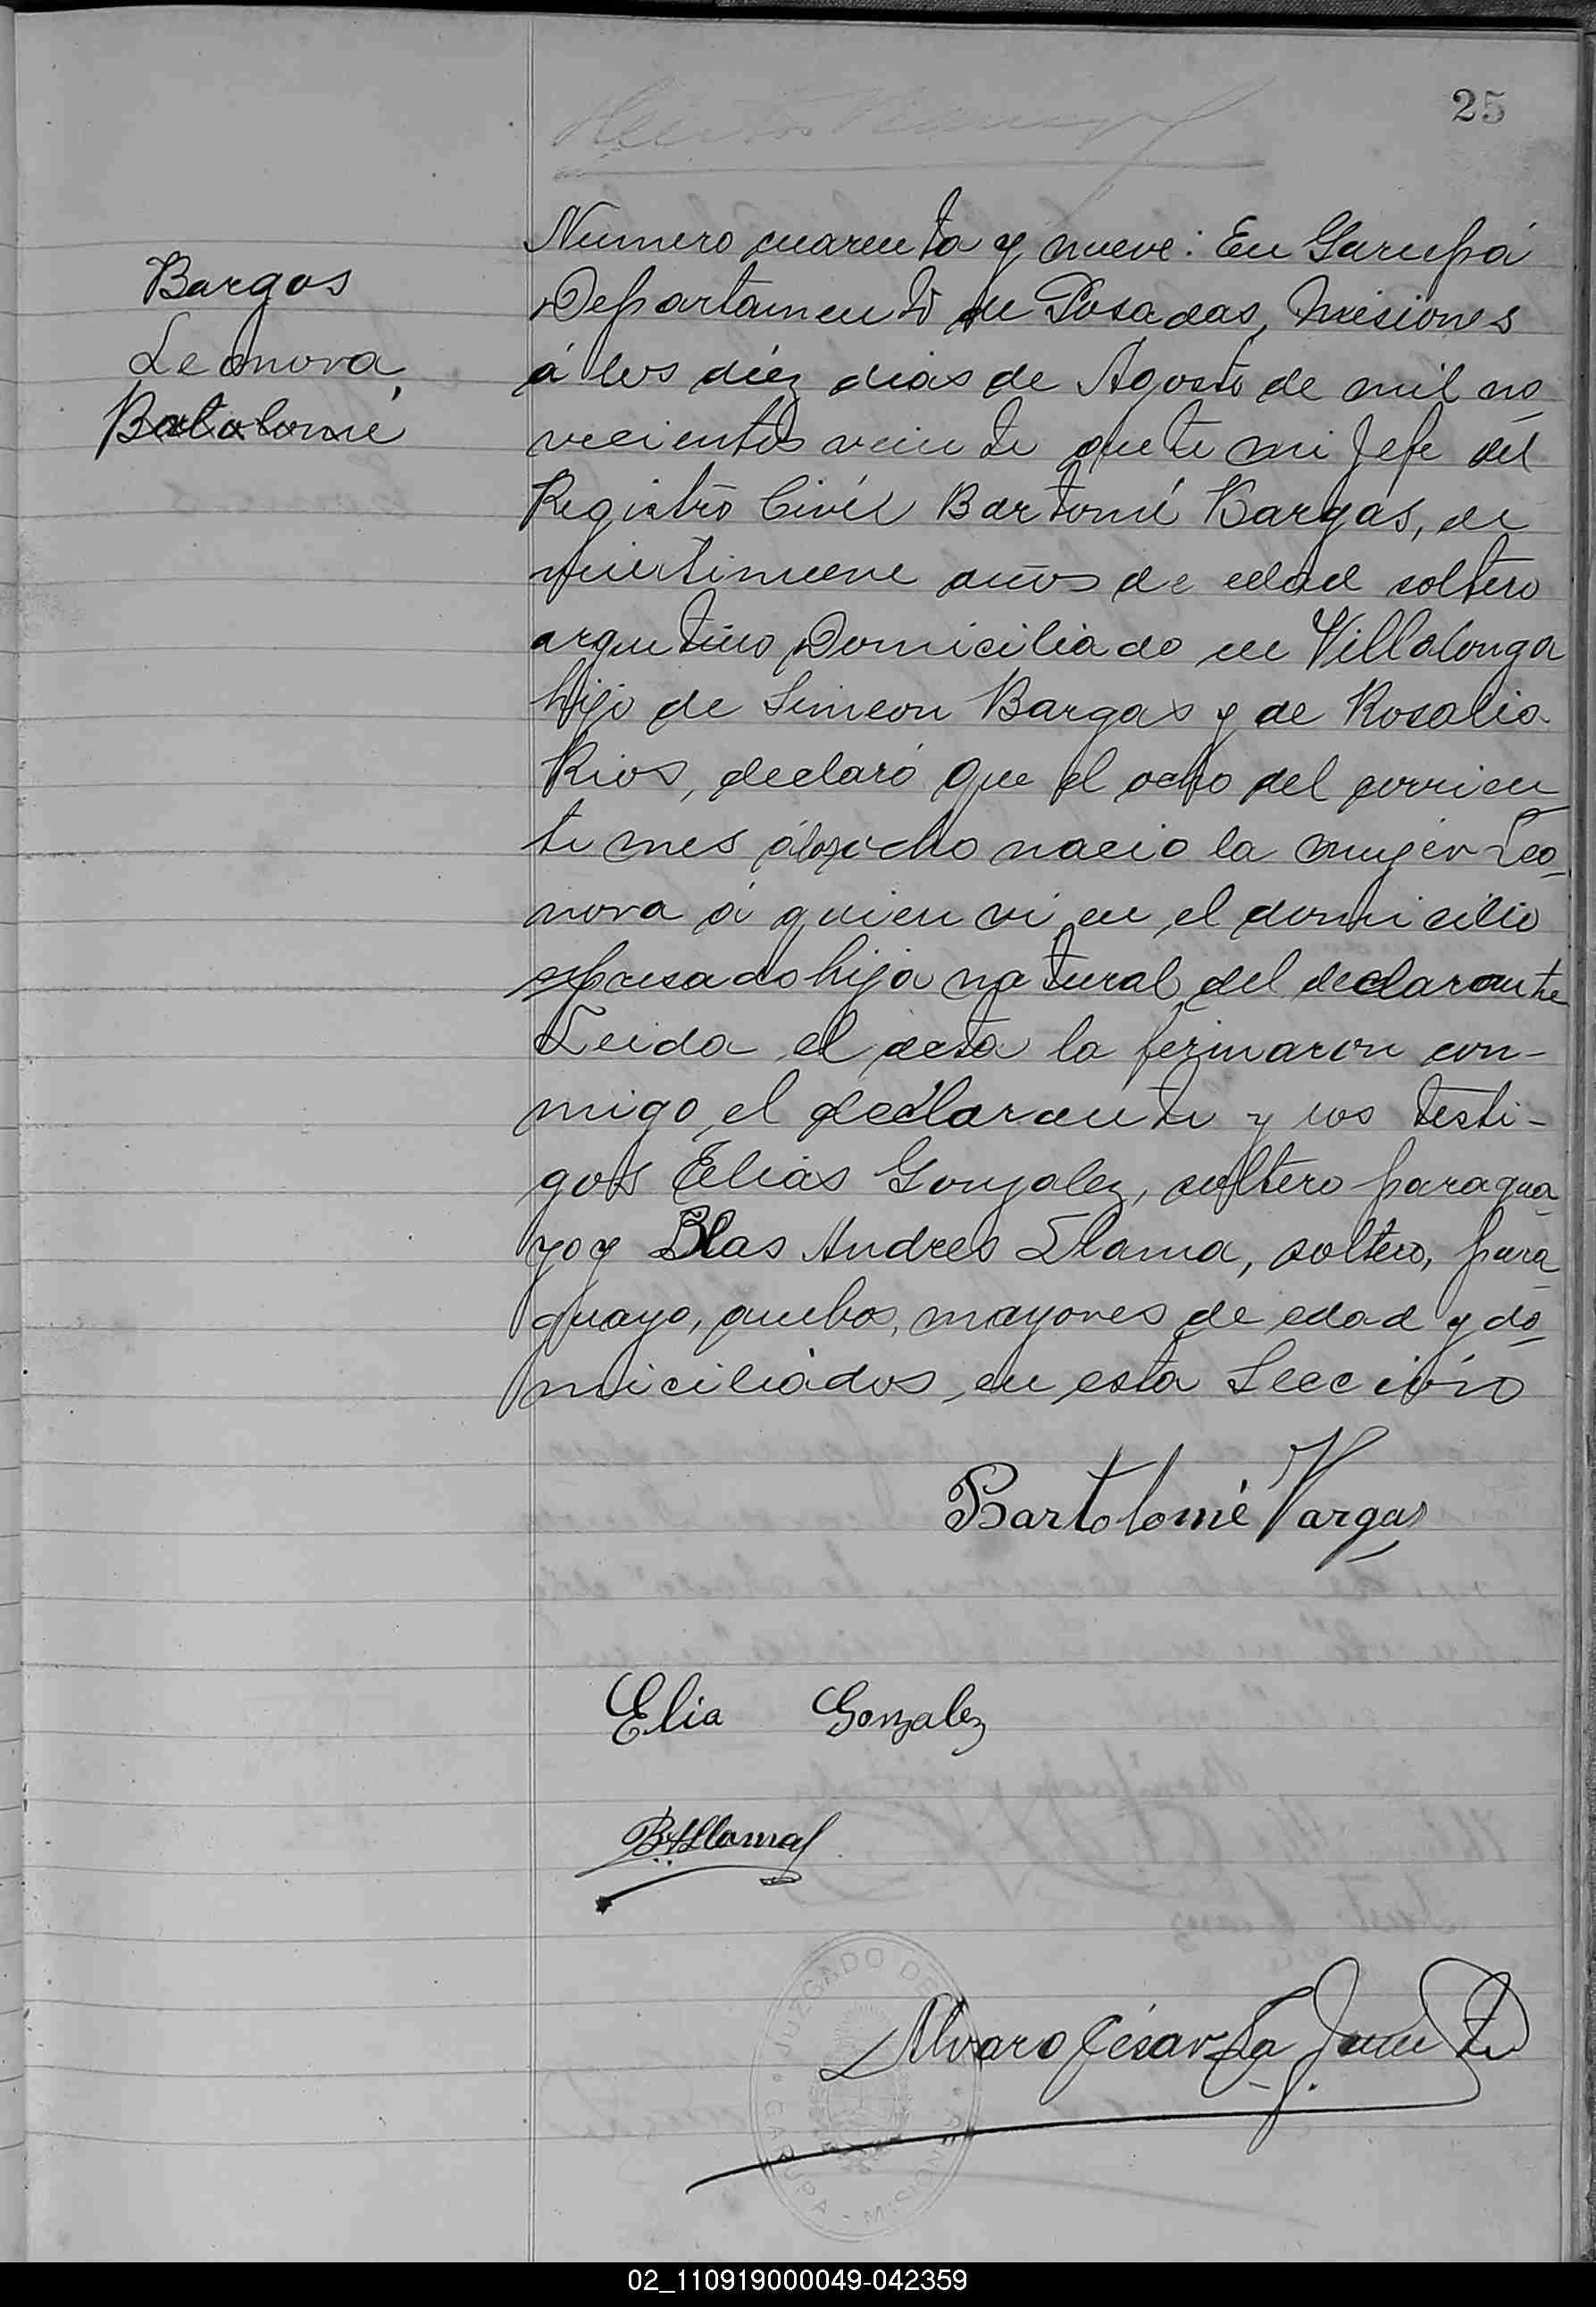 25
Bargas
Leonora
Batolomé
Numero cuarenta y nueve: En Garupá
Departamento de Posadas, Misiones
á los diéz dias de Agosto de mil no
vecientos veinte ante mi Jefe del
Registro Civil Bartomé Bargas, de
veintinueve años de edad soltero
argentino Domiciliado en Villalonga
hijo de Simeon Bargas y de Rosalia
Rios, declaró que el ocho del corrien
te mes álas ocho nacio la mujer Leo
nora á quien vi en el domicilio
espresado hija natural del declarante
Leida el acta la firmaron con-
migo, el declarante y los testi-
gos Elias Gonzalez, soltero paragua
yo y Blas Andres Llama, soltero, para
guayo, ambos, mayores de edad y do
miciliados en esta Sección
Bartolomé Vargas
Elia Gonzalez
B. A. Llamas
Alvaro César La
JUZGADO DE
GARUPA
02_110919000049-042359